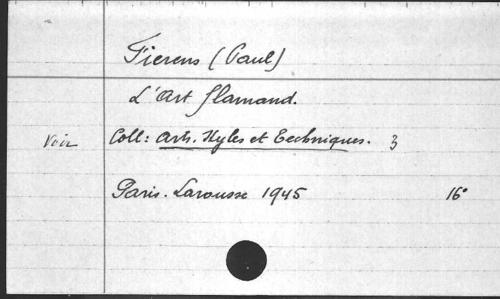 Fierens (Paul)
L'Art flamand.
Voir Coll: Arts. Styles et Techniques. 3
Paris. Larousse 1945 16°